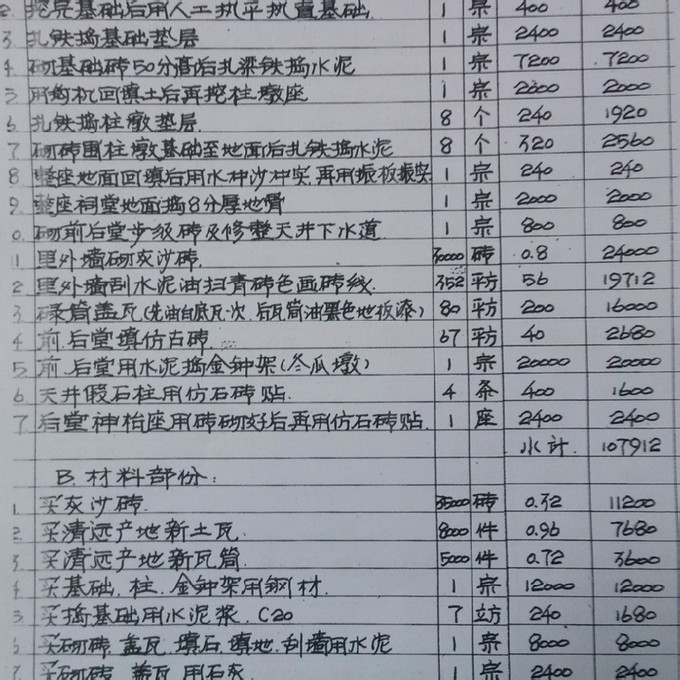 2. 挖完基础后用人工执平执直基础. 1 宗 400 400
3 扎铁捣基础垫层 1 宗 2400 2400
4. 砌基础砖50分高后扎梁铁捣水泥 1 宗 7200 7200
5 用钩机回填土后再挖柱墩座 1 宗 2000 2000
6 扎铁捣柱墩垫层. 8 个 240 1920
7 砌砖围柱墩基础至地面后扎铁捣水泥 8 个 320 2560
8 整座地面回填后用水冲沙冲实,再用振板振实 1 宗 240 240
9. 整座祠堂地面捣8分厚地骨 1 宗 2000 2000
0. 砌前后堂步级砖及修整天井下水道 1 宗 800 800
11 里外墙砌灰沙砖. 30000 砖 0.8 24000
2 里外墙刮水泥油扫青砖色画砖线. 352 平方 56 19712
3 碌筒盖瓦(先油白底瓦一次.后瓦筒油黑色地板漆) 80 平方 200 16000
4 前.后堂填仿古砖. 67 平方 40 2680
5 前.后堂用水泥捣金钟架(冬瓜墩) 1 宗 20000 20000
6 天井假石柱用仿石砖贴. 4 条 400 1600
7 后堂神枱座用砖砌好后再用仿石砖贴. 1 座 2400 2400
小计. 107912
B.材料部份:
1. 买灰沙砖. 35000 砖 0.32 11200
2. 买清远产地新土瓦. 8000 件 0.96 7680
3. 买清远产地新瓦筒. 5000 件 0.72 3600
4 买基础.柱.金钟架用钢材. 1 宗 12000 12000
5. 买捣基础用水泥浆. C20 7 立方 240 1680
6 买砌砖.盖瓦.填石.填地.刮墙用水泥 1 宗 8000 8000
7. 买砌砖.盖瓦.用石灰. 1 宗 2400 2400